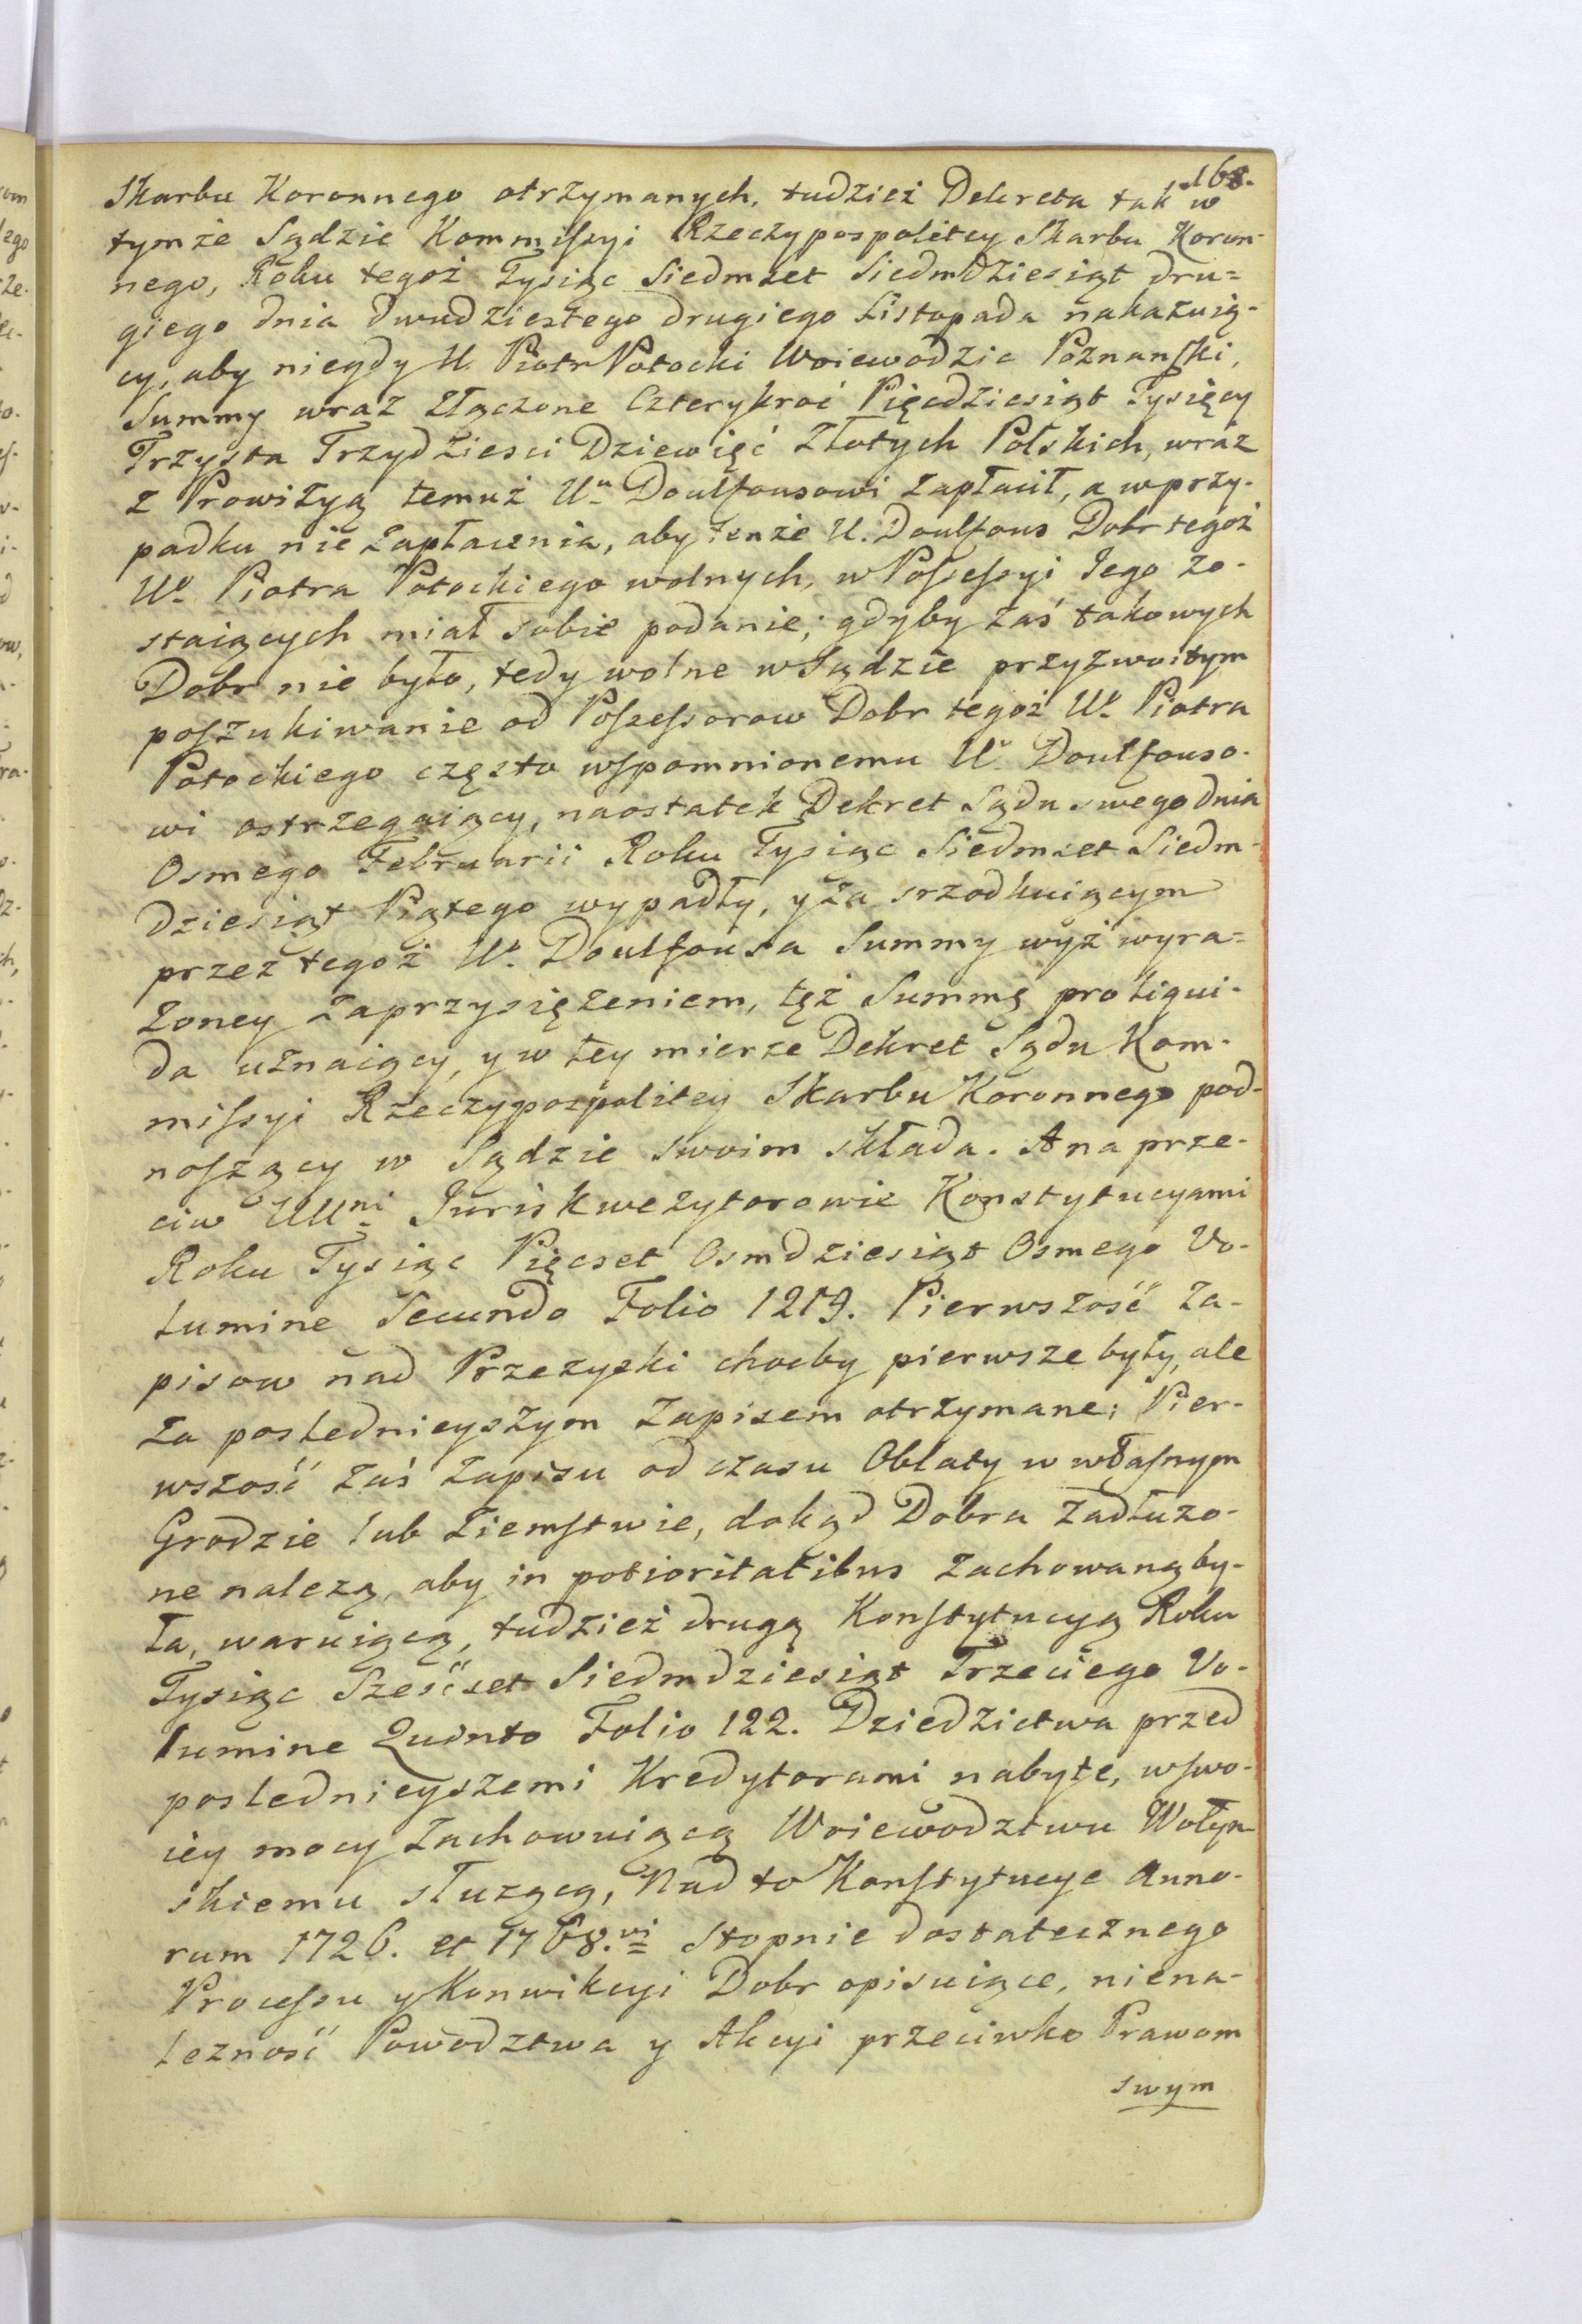 168.
Skarbu Koronnego otrzymanych, tudzież Dekreta tak w
tymże Sądzie Kommissyi Rzeczypospolitey Skarbu Koron-
nego, Roku tegoż Tysiąc Siedmset Siedmdziesiąt dru=
giego dnia dwudziestego drugiego Listopada nakazuią-
cy, aby niegdy U. Piotr Potocki Woiewodzic Poznanski,
Summy wraz złączone Czterykroć Pięcdziesiąt Tysięcy
Trzysta Trzydziesci Dziewięć Złotych Polskich, wraz
z Prowizyą temuż Uu Doulfousowi zapłacił, a w przy-
padku nie zapłacenia, aby tenże U. Doulfous Dobr tegoż
Uo Piotra Potockiego wolnych, w Possessyi Jego zo-
staiących miał sobie podanie; gdyby zaś takowych
Dobr nie było, tedy wolne w Sądzie przyzwoitym
poszukiwanie od Possessorow Dobr tegoż Uo Piotra
Potockiego często wspomnionemu Uu Doulfouso-
wi ostrzegaiący, naostatek Dekret Sądu swego dnia
Osmego Februarii Roku Tysiąc Siedmset Siedm-
dziesiąt Piątego wypadły, y za srzodkuiącym
przez tegoż Uo Doulfousa Summy wyż wyra=
żoney zaprzysiężeniem, tęż Summę pro liqui-
da uznaiący, y w tey mierze Dekret Sądu Kom-
missyi Rzeczypospolitey Skarbu Koronnego pod-
noszący w Sądzie swoim składa. A na prze-
ciw UUni Juriskwezytorowie Konstytucyami
Roku Tysiąc Pięcset Osmdziesiąt Osmego Vo-
lumine Secundo Folio 1219. Pierwszość za-
pisow nad Przezyski choćby pierwsze były, ale
za poslednieyszym zapisem otrzymane; Pier-
wszość zaś zapisu od czasu Oblaty w własnym
Grodzie lub Ziemstwie, dokąd Dobra zadłużo-
ne nalezą, aby in potioritatibus zachowaną by-
ła, waruiącą, tudzież drugą Konstytucyą Roku
Tysiąc Sześćset Siedmdziesiąt Trzeciego Vo-
lumine Quinto Folio 122. Dziedzictwa przed
poslednieyszemi Kredytorami nabyte, w swo-
iey mocy zachowuiącą Woiewodztwu Wołyn-
skiemu służącą, Nad to Konstytucye Anno-
rum 1726. et 1768.vi Stopnie dostatecznego
Processu y Konwikcyi Dobr opisuiące, niena-
leznosć Powodztwa y Akcyi przeciwko Prawom
swym